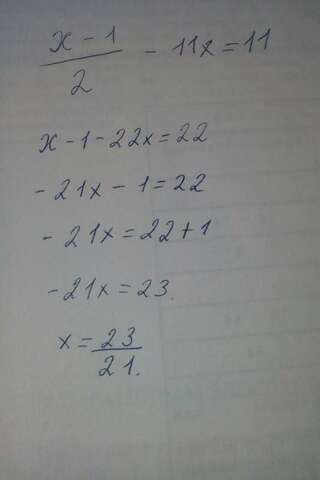 x - 1
2
- 11x = 11
x - 1 - 22x = 22
- 21x - 1 = 22
- 21x = 22 + 1
- 21x = 23.
x = 23
21.